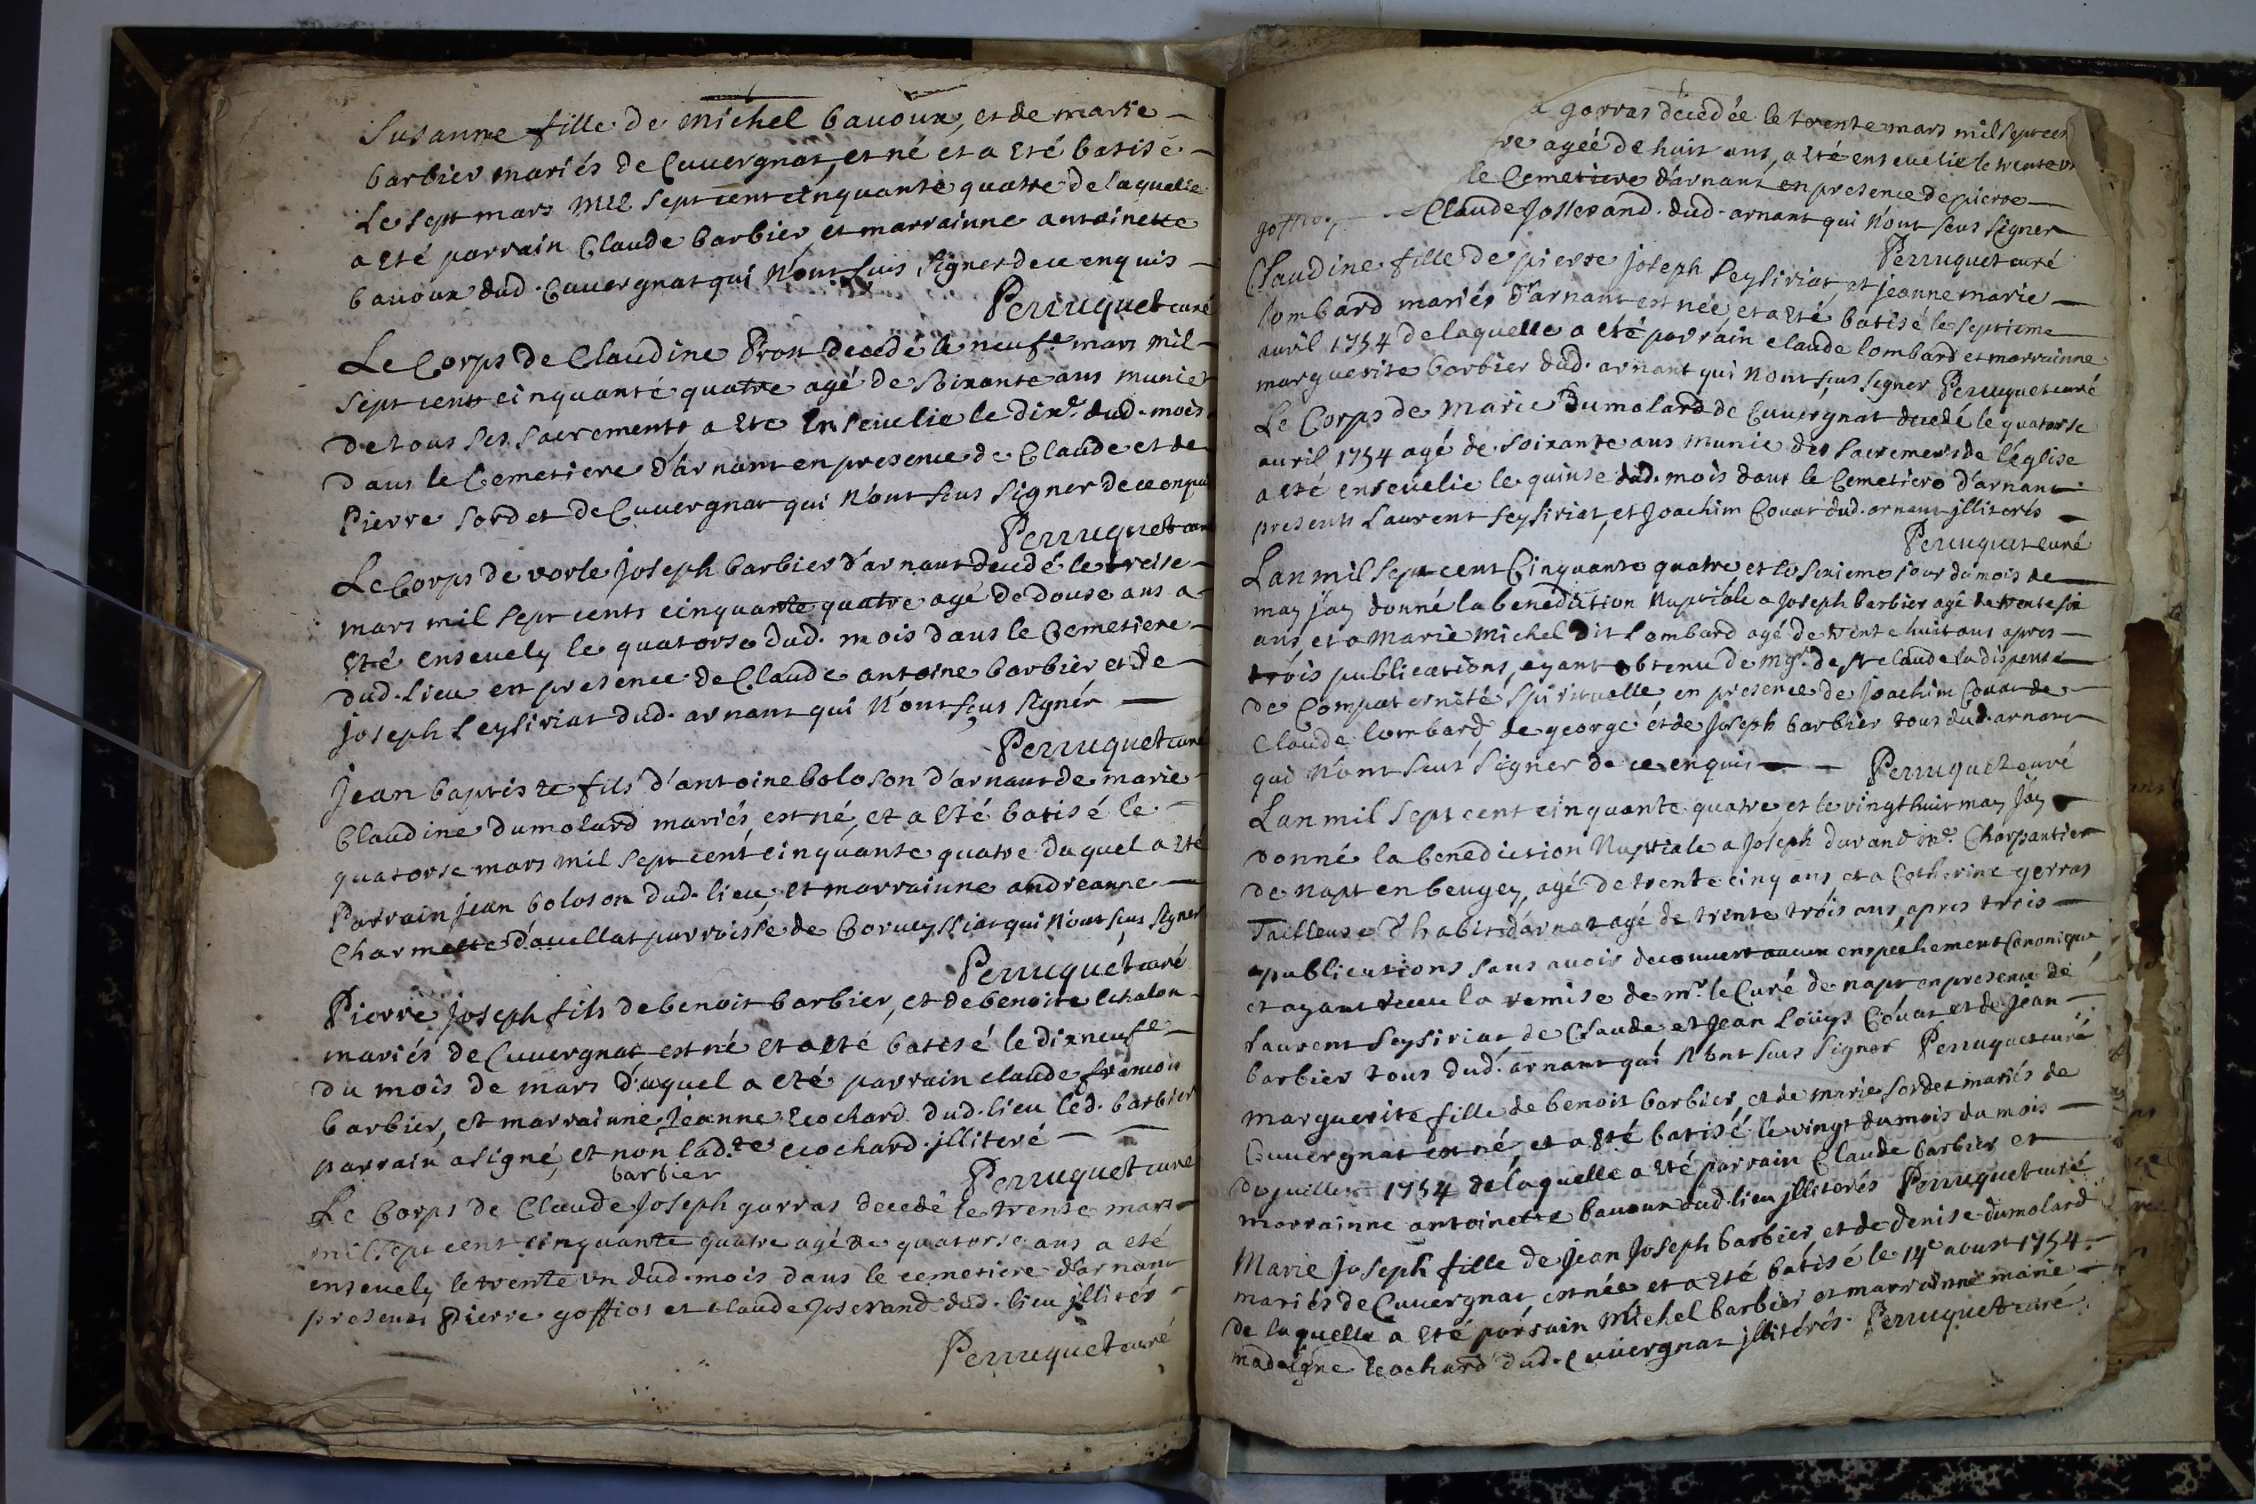 Susanne fille de michel bavoux, et de marie
barbier mariés de Cuvergnat, et né et a eté batisé
Le sept mars mil sept cent cinquante quatre de laquelle
a eté parrain Claude barbier et marrainne antoinette
bavoux dud. Cuvergnat qui n'ont sus signer de ce enquis
Perruquet curé
Le Corps de Claudine Prost decedé le neufe. mars mil
sept cents cinquante quatre agé de soixante ans munie
de tous ses sacrements a eté Ensevelie le dixe. dud. mois
dans le Cemetiere d'arnant en presence de Claude et de
Pierre Sordet de Cuvergnat qui n'ont sus signer de ce enquis
Perruquet curé
Le Corps de vorle joseph barbier d'arnant decedé le treise
mars mil sept cents cinquante quatre agé de douse ans a
eté ensevely le quatorse dud. mois dans le Cemetiere
dud. Lieu en presence de Claude antoine barbier et de
joseph Seysiriat dud. arnant qui n'ont sçus signér
Perruquet curé
Jean baptiste fils d'antoine boloson d'arnant de marie
Claudine dumolard mariés, est né, et a eté batisé le
quatorse mars mil sept cent cinquante quatre duquel a eté
Parrain jean boloson dud. lieu, et marrainne andreanne
Charmette d'avellat parroisse de Corveyssiat qui n'ont sus signer
Perruquet curé
Pierre Joseph fils de benoit barbier, et de benoite Echalon
mariés de Cuvergnat est né et a eté batisé le dix neufe
du mois de mars duquel a eté parrain claude francois
barbier, et marrainne jeanne ecochard dud. lieu led. barbier
parrain a signé, et non lad.te ecochard jlliteré
barbier
Perruquet curé
Le Corps de Claude Joseph garras decedé le trente mars
mil sept cent cinquante quatre agé de quatorse ans a eté
ensevely le trente un dud. mois dans le cemetiere d'arnant
presents Pierre goffioz et claude joserand dud. lieu jllités
Perruquet curé
a garras decedée le trente mars mil sept cen
re agéé de huit ans, a eté ensevelie le trente un
le Cemetiere d'arnant en presence de pierre
Claude Josserand dud. arnant qui n'ont seus signer
Perruquet curé
Claudine fille de pierre joseph Seysiriat, et jeanne marie
lombard mariés d'arnant est née, et a eté batisé le septieme
avril 1754 de laquelle a eté parrain claude lombard et marrainne
marguerite barbier dud. arnant qui n'ont sçus signer Perruquet curé
Le Corps de marie Dumolard de Cuvergnat decedé le quatorse
avril 1754 agé de soixante ans munie des sacrements de l'église
a eté ensevelie le quinse dud. mois dans le Cemetiere d'arnant
presents Laurent seysiriat, et Joachim Covat dud. arnant jlliterés
Perruquet curé
Lan mil sept cent Cinquante quatre et le sixieme jour du mois de
may j'ay donné la benediction Nuptiale a Joseph barbier agé de trente six
ans, et a Marie michel dit Lombard agé de trente huit ans apres
trois publications, ayant obtenu de mgr. de st claude la dispense
de Compaternité spirituelle en presence de joachim Covat de
Claude lombard de george et de Joseph barbier tous dud. arnant
qui n'ont seus signer de ce enquis Perruquet curé
Lan mil sept cent cinquante quatre, et le vingt huit may j'ay
donné la benediction Nuptiale a Joseph durand me. Charpantier
de napt en beugey, agé de trente cinq ans et a Catherine gerras
Tailleuse d'habit d'arnat agé de trente trois ans, apres trois
publications sans avoir decouvert aucun empechement Canonique
et ayant receu la remise de mr. le Curé de napt en presence de
Laurent Seysiriat de Claude et Jean Louys Covat et de jean
barbier tous dud. arnant qui n'ont sus signer Perruquet curé
marguerite fille de benoit barbier, et de marie Sordet mariés de
Cuvergnat est né, et a eté batisé le vingt du mois du mois
de juillet 1754 de laquelle a eté parrain Claude barbier et
marrainne antoinette bavoux dud. lieu jlliterés Perruquet curé
Marie joseph fille de jean joseph barbier, et de denise dumolard
mariés de Cuvergnat est née et a eté batisé le 14e aoust 1754.
de laquelle a eté parrain michel barbier et marrainne marie
madelgne ecochard dud. Cuvergnat jllitérés. Perruquet curé